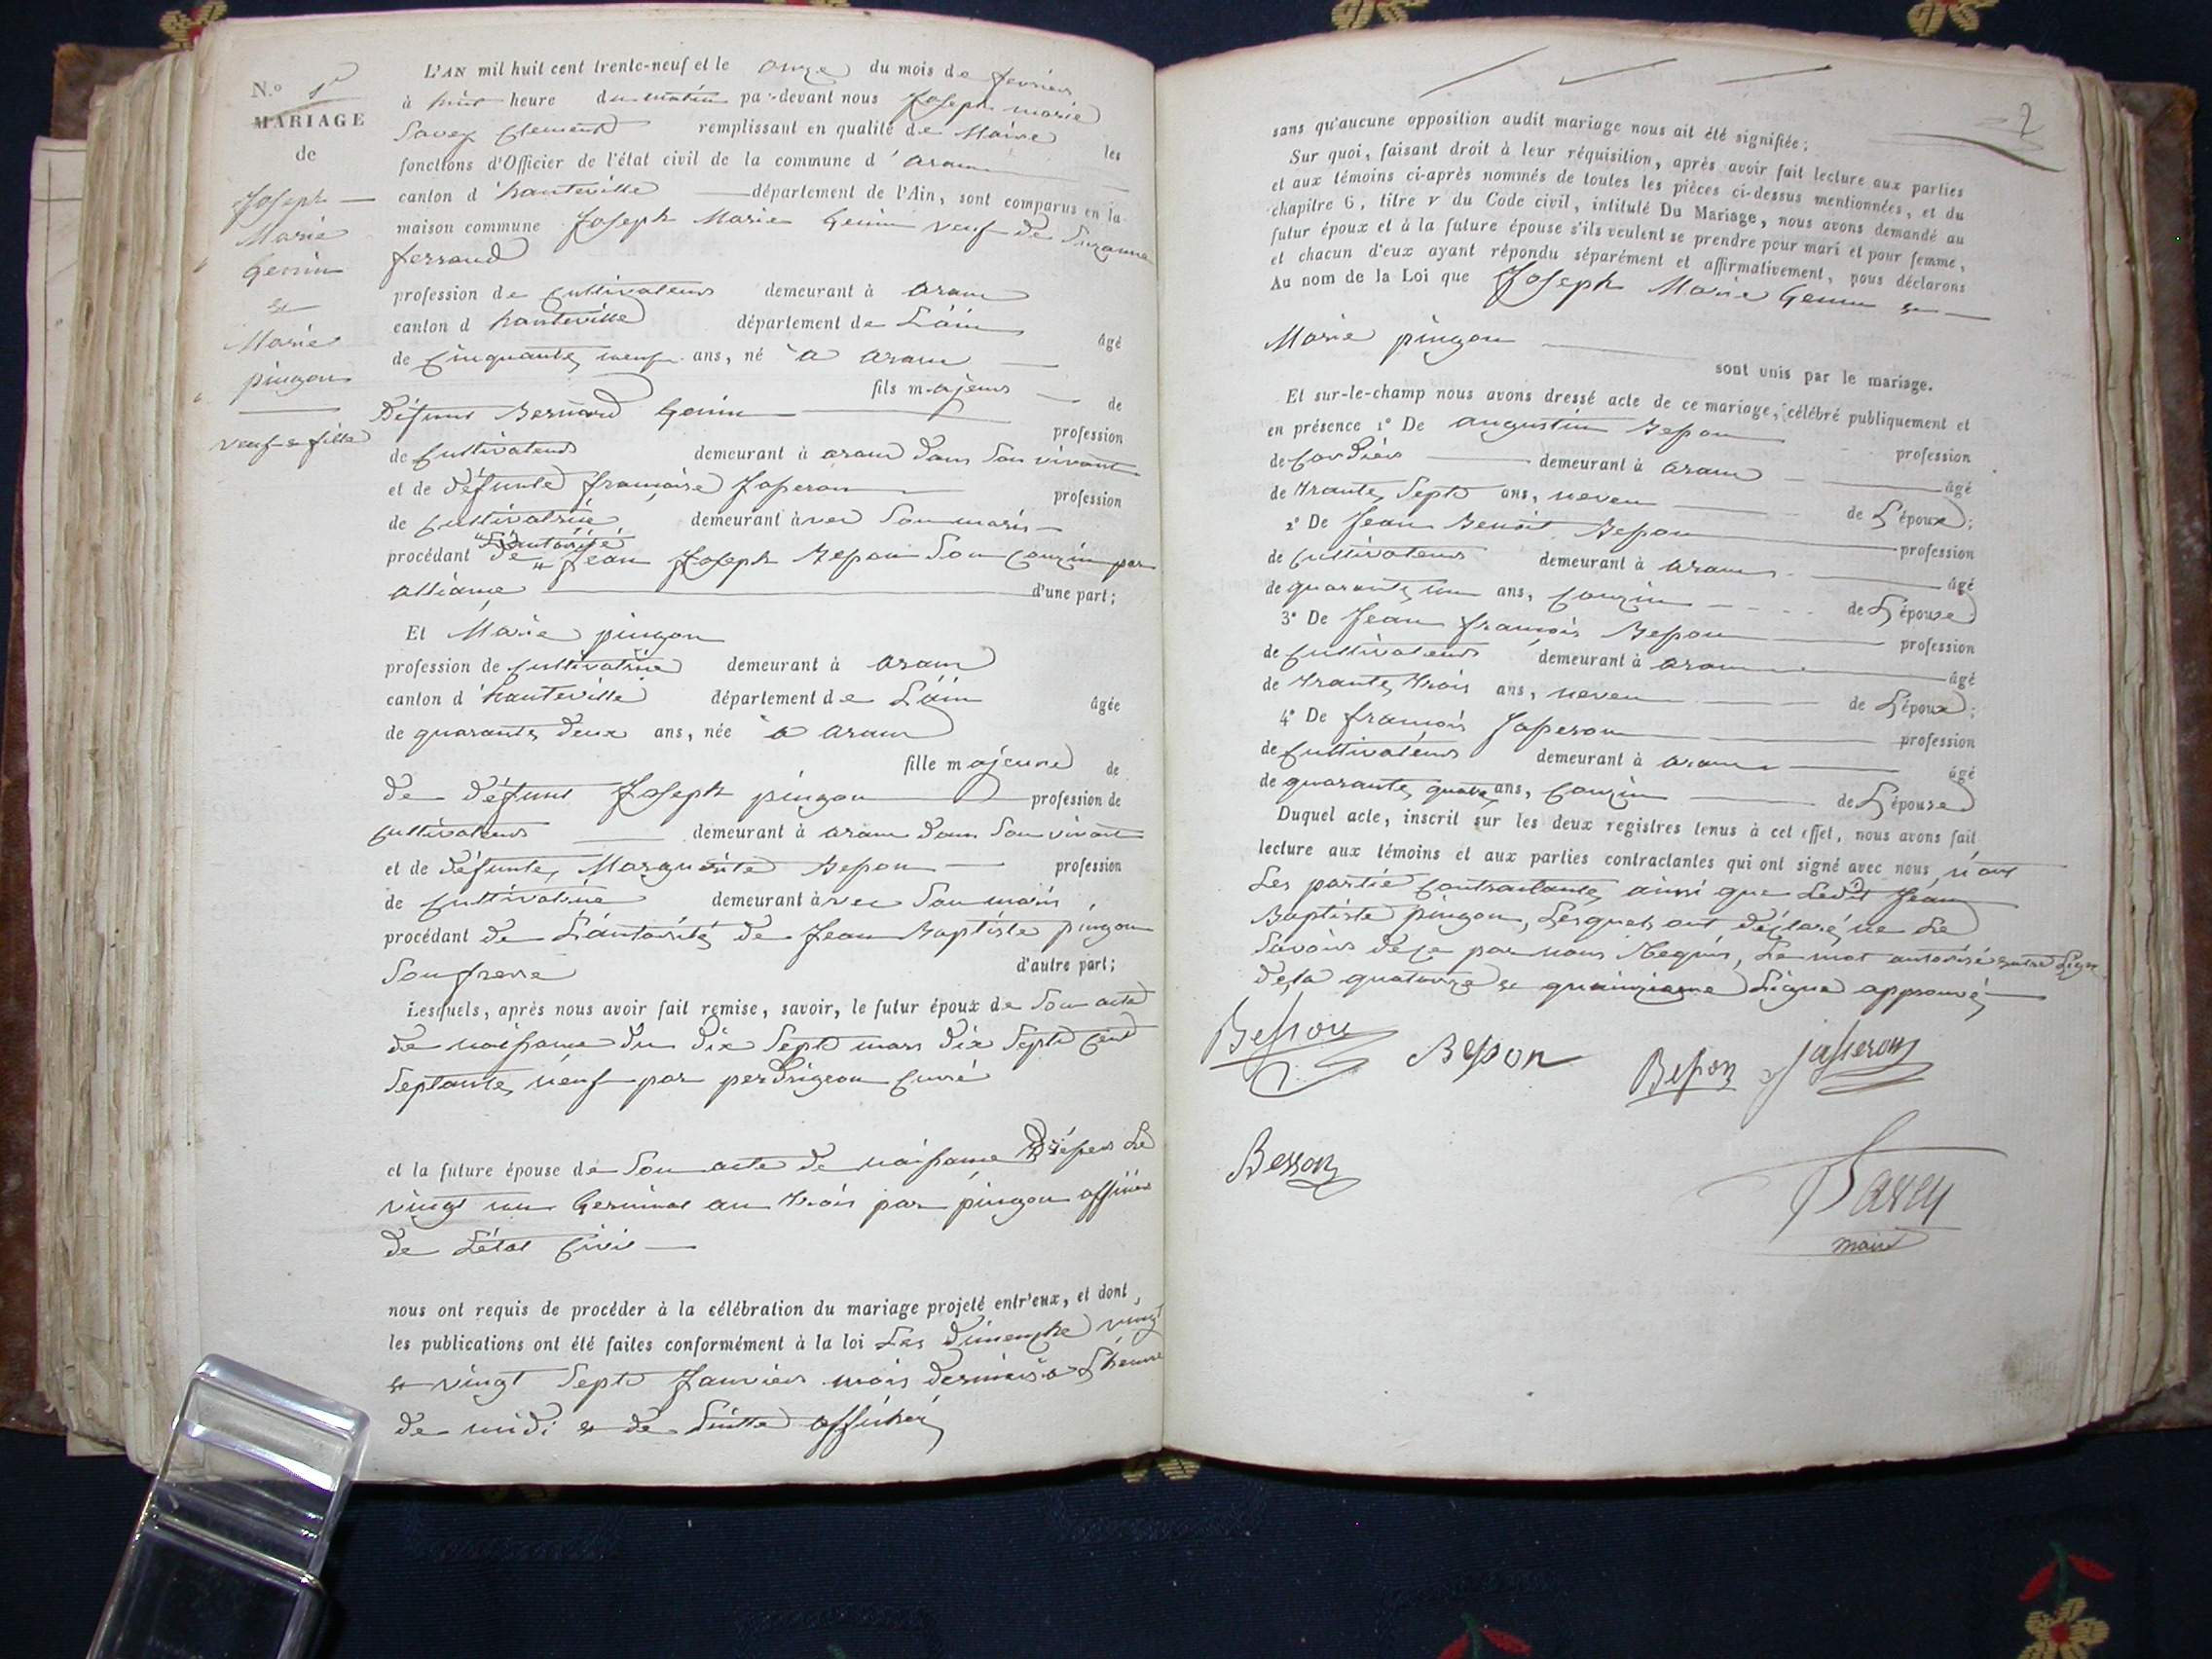 N.º 1er
MARIAGE
de
Joseph
Marie
Genin
&
Marie
pingon
veuf & fille
L'AN mil huit cent trente-neuf et le onze du mois de fevrier
à huit heure du matin par-devant nous Joseph marie
Savey Clement remplissant en qualité de Maire les
fonctions d'Officier de l'état civil de la commune d'aranc
canton d'hauteville département de l'Ain, sont comparus en la
maison commune Joseph Marie Genin veuf de Suzanne
ferraud
profession de Cultivateur demeurant à aranc
canton d hauteville département de L'ain âgé
de Cinquante neuf ans, né à aranc
fils majeur de
Défunt Bernard Genin profession
de Cultivateur demeurant à aranc dans Son vivant
et de défunte françoise Jaseron profession
de Cultivatrice demeurant avec Son maris
L'autorisé
procédant de Jean Joseph Besson Son Couzin par
alliance d'une part;
Et Marie pingon
profession de Cultivatrice demeurant à aranc
canton d'hauteville département de L'ain âgée
de quarante deux ans, née à aranc
fille majeure de
de défunt Joseph pingon profession de
Cultivateur demeurant à aranc dans Son vivant
et de défunte Marguerite Besson profession
de Cultivatrice demeurant avec Son maris
procédant de L'autorité de Jean Baptiste pingon
Son frere d'autre part;
Lesquels, après nous avoir fait remise, savoir, le futur époux de Son acte
de naissance du dix Sept mars dix Sept Cent
Septante neuf par perdrigeon Curé
et la future épouse de Son acte de naissance Dréssé Le
vingt un Germinal an trois par pingon officier
de L'état Civil
nous ont requis de procéder à la célébration du mariage projeté entr'eux, et dont
les publications ont été faites conformément à la loi Les dimenche vingt
& vingt Sept Janvier mois dernier à L'heure
de midi & de Suitte affichée
2
sans qu'aucune opposition audit mariage nous ait été signifiée;
Sur quoi, faisant droit à leur réquisition, après avoir fait lecture aux parties
et aux témoins ci-après nommés de toutes les pièces ci-dessus mentionnées, et du
chapitre 6, titre V du Code civil, intitulé Du Mariage, nous avons demandé au
futur époux et à la future épouse s'ils veulent se prendre pour mari et pour femme,
et chacun d'eux ayant répondu séparément et affirmativement, nous déclarons
Au nom de la Loi que Joseph Marie Genin &
Marie pingon
sont unis par le mariage.
Et sur-le-champ nous avons dressé acte de ce mariage, célébré publiquement et
en présence 1º De augustin Besson profession
de Cordier demeurant à aranc âgé
de trante Sept ans, neveu de L'époux;
2º De Jean Benoit Besson profession
de Cultivateur demeurant à aranc âgé
de quarante un ans, Couzin de L'épouse
3º De Jean françois Besson profession
de Cultivateur demeurant à aranc âgé
de trante trois ans, neveu de L'époux;
4º De françois Jaseron profession
de Cultivateur demeurant à aranc âgé
de quarante quatre ans, Couzin de L'épouse
Duquel acte, inscrit sur les deux registres tenus à cet effet, nous avons fait
lecture aux témoins et aux parties contractantes qui ont signé avec nous, non
Les partie Contractante ainsi que Ledit Jean
Baptiste pingon, Lesquels ont déclaré ne Le
Savoir de Ce par nous Requis, Le mot autorisé entre Ligne
de la quatorze & quainzieme Ligne approuvé
Besson
Besson
Besson
Jasseron
Besson
Savey
maire